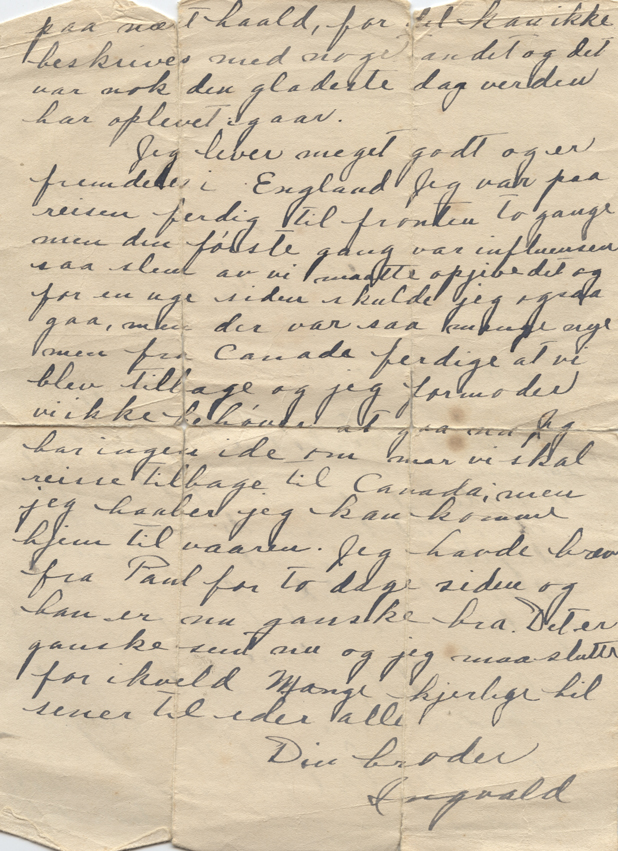 paa næst haald, for det kan ikke
beskrives med noget andet og det
var nok den gladeste dag verden
har oplevet igaar.
Jeg lever meget godt og er
fremdeles i England Jeg var paa
reisen ferdig til fronten to gange
men den første gang var influensen
saa slem av vi maatte opjive det og
for en uge siden skulde jeg ogsaa
gaa, men der var saa mange nye
men fra Canada ferdige at vi
blev tilbage og jeg formoder
vi ikke behøver at gaa nu. Jeg
har ingen ide om naar vi skal
reise tilbage til Canada, men
jeg haaber jeg kan komme
hjem til vaaren. Jeg havde brev
fra Paul for to dage siden og
han er nu ganske bra. Det er
ganske sent nu og jeg maa slutte
for ikveld Mange kjerlige hil
sener til eder alle
Din broder
Ingvald